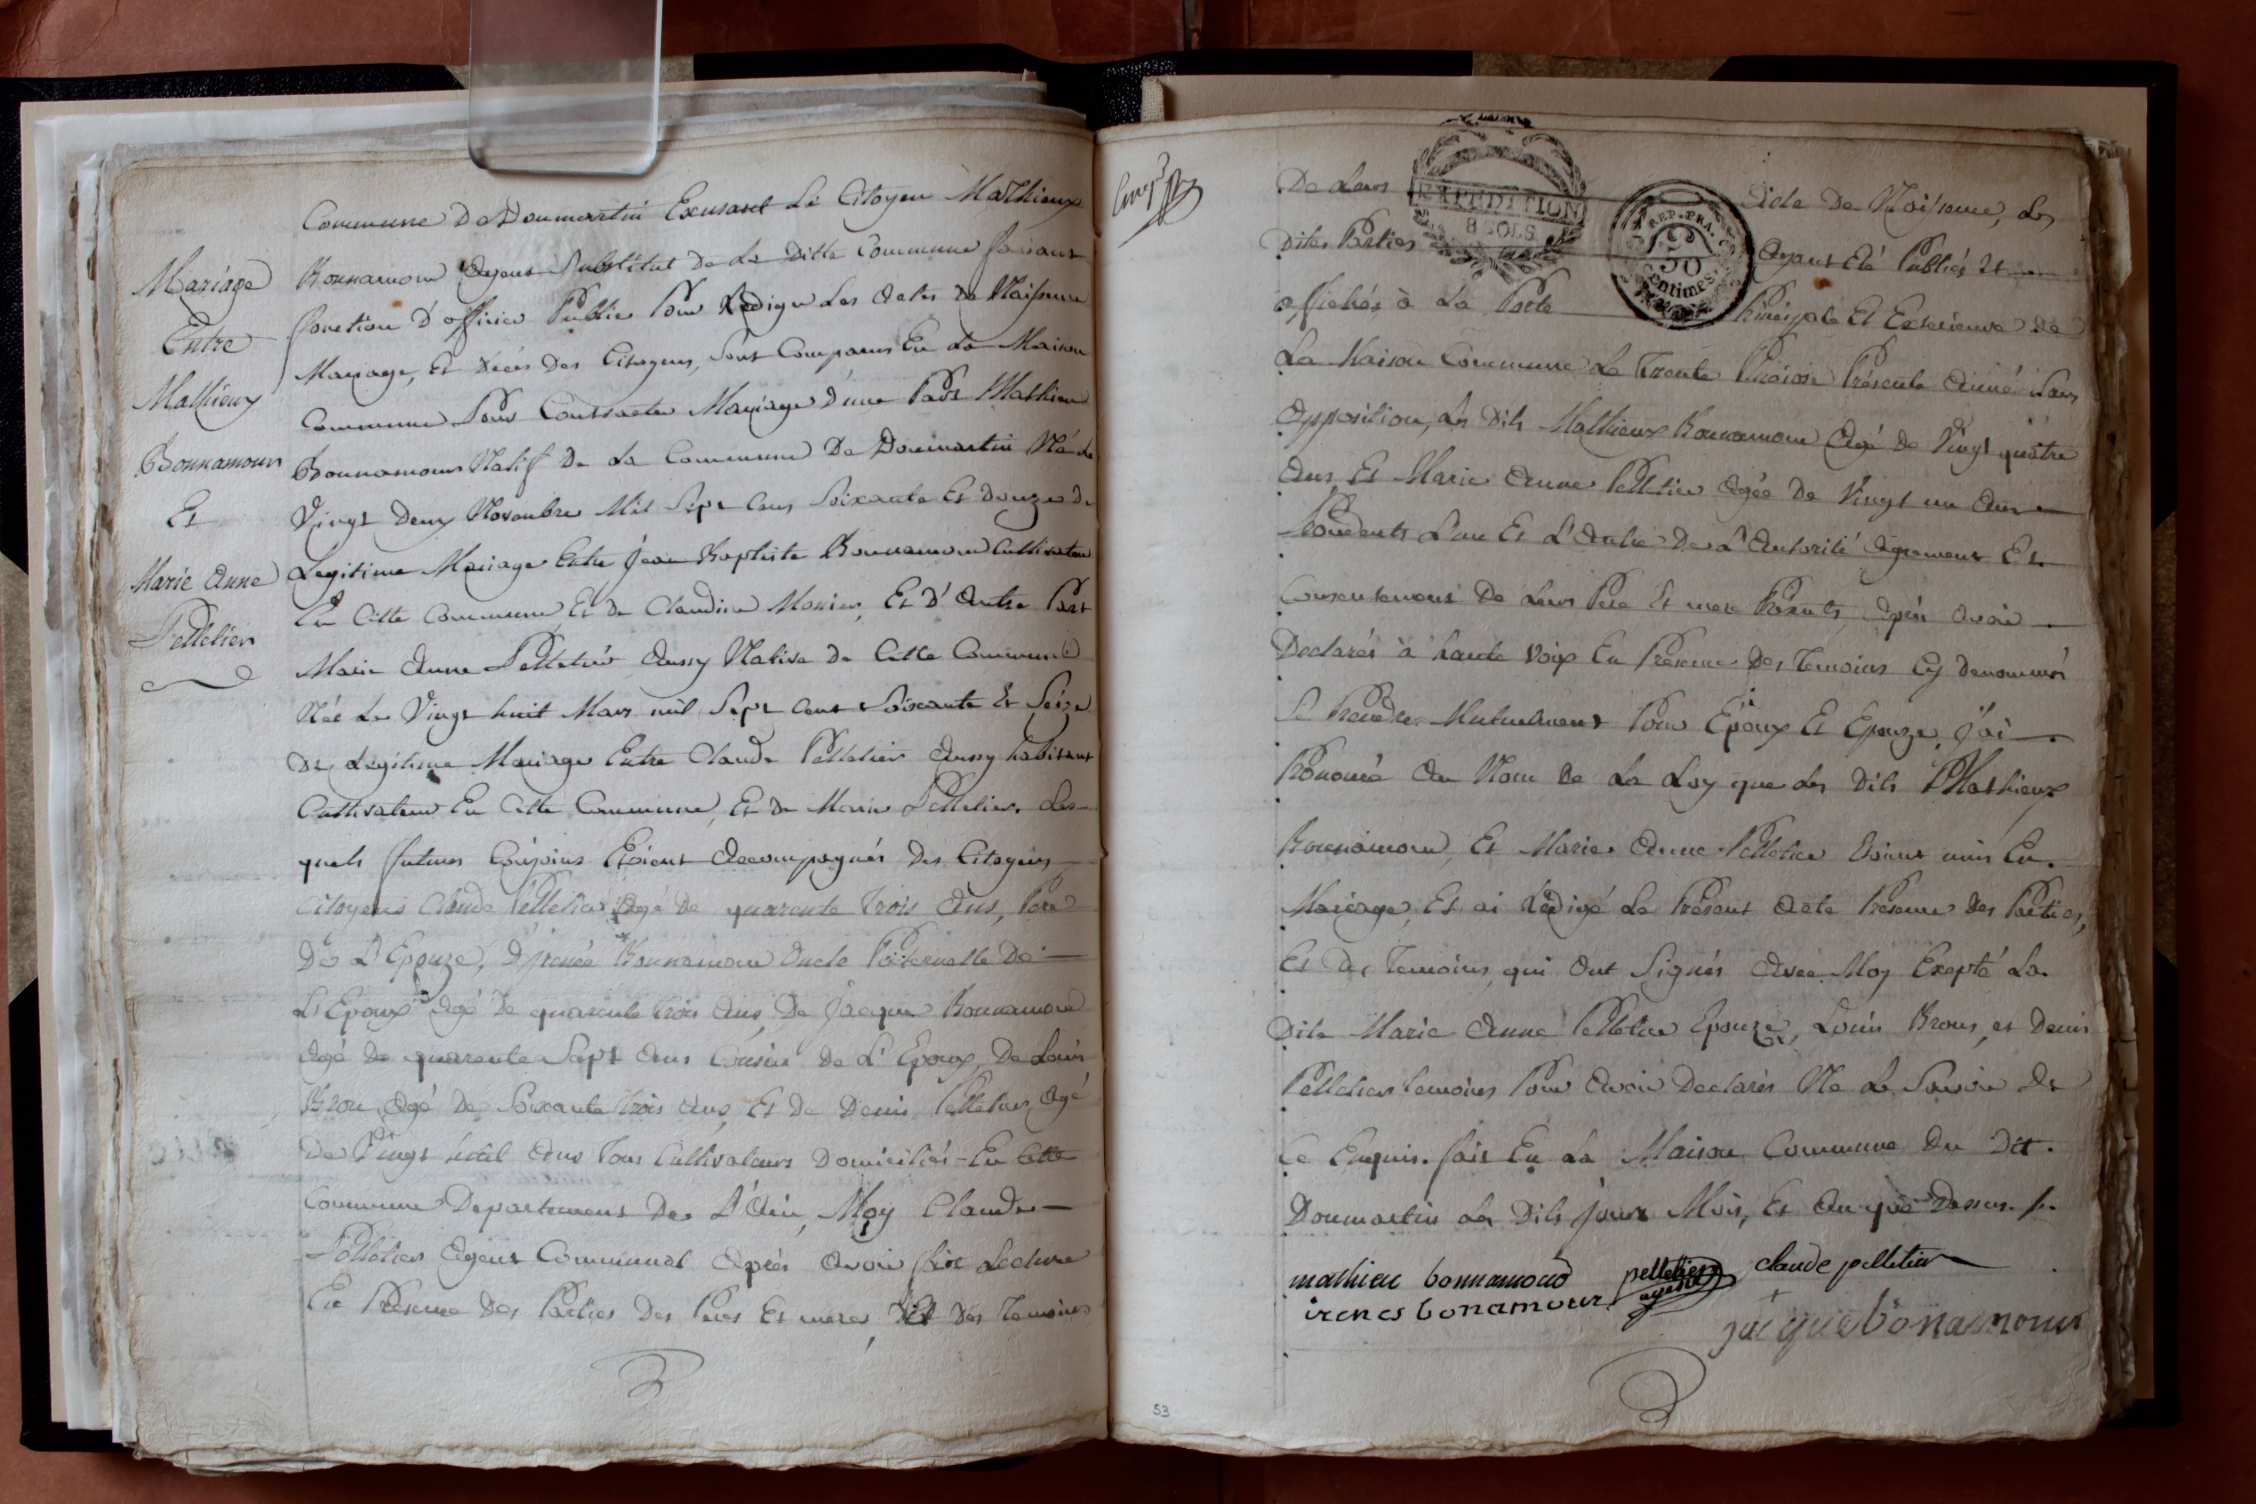 Mariage
Entre
Mathieux
Bonnamour
Et
Marie Anne
Pelletier
Commune De Doumartin Exusant Le Citoyen Mathieux
Bonnamour Agent Substitut De La Ditte Commune faisant
fonction D'officier Public Pour Rediger Les Actes De Naissance
Mariage, Et Décés Des Citoyens, Sont Comparus En La Maison
Commune Pour Contracter Mariage D'une Part Mathieu
Bonnamour Natif De La Commune De Doumartin Né Le
Vingt Deux Novembre Mil Sept Cens Soixante Et Douze De
Legitime Mariage Entre Jean Baptiste Bonnamour Cultivateur
En Cette Commune, Et De Claudine Monier, Et D'Autre Part
Marie Anne Pelletier Aussy Native De Cette Commune
Née Le Vingt huit Mars mil Sept Cent Soixante Et Seize
De Légitime Mariage Entre Claude Pelletier Aussy habitant
Cultivateur En Cette Commune, Et De Marie Pelletier. Les-
quels futurs Conjoins Etoient Accompagnés Des Citoyens
Citoyens Claude Pelletier Agé De quarante Trois Ans, Pere
De L'Epouze, D'jrenée Bonnamour Oncle Paternelle De
L'Epoux Agé De quarante trois Ans, De Jacque Bonnamour
Agé De quarante Sept Ans Cousin De L'Epoux, De Louis
Brou, Agé De Soixante trois Ans, Et De Denis Pelletier, Agé
De Vingt huit Ans Tous Cultivateurs Domiciliés En Cette
Commune Departement De L'Ain, Moy Claude
Pelletier Agent Communal Après Avoir fait Lecture
En Présence Des Parties Des Peres Et meres, Et Des Temoins
De Leurs Acte De Naissance, Les
EXPEDITION
8 SOLS
REP. FRA.
50
Centimes
Dites Parties Ayant Eté Publiés Et
affichés à La Porte Principale Et Exterieure De
La Maison Commune Le Trente Présente Année Sans
Opposition, Les Dits Mathieux Bonnamour Agé De Vingt quatre
Ans, Et Marie Anne Pelletier Agée De Vingt un Ans
L'un Et L'Autre De L'Autorité Agrement Et
Consentement De Leurs Pere Et mere Présents, Après Avoir
Declarés à haute Voix En Présence Des Temoins Cy denommés
Se Prendre Mutuelment Pour Epoux Et Epouze, J'ai
Prononcé Au Nom De La Loy que Les Dits Mathieux
Bonnamour, Et Marie Anne Pelletier Etoient unis En
Mariage, Et ai Redigé Le Présent Acte Présence Des Parties,
Et Des Temoins, qui Ont Signés Avec Moy Exepté La
Dite Marie Anne Pelletier Epouze, Louis Brou, et Denis
Pelletier temoins Pour Avoir Declarés Ne Le Savoir De
Ce Enquis. fait En La Maison Commune Du Dit
Doumartin Les Dits Jour Mois, Et An que Dessus.
mathieu bonnamour pelletier agent claude pelletier
irenes bonamour
jacque bonamour
53